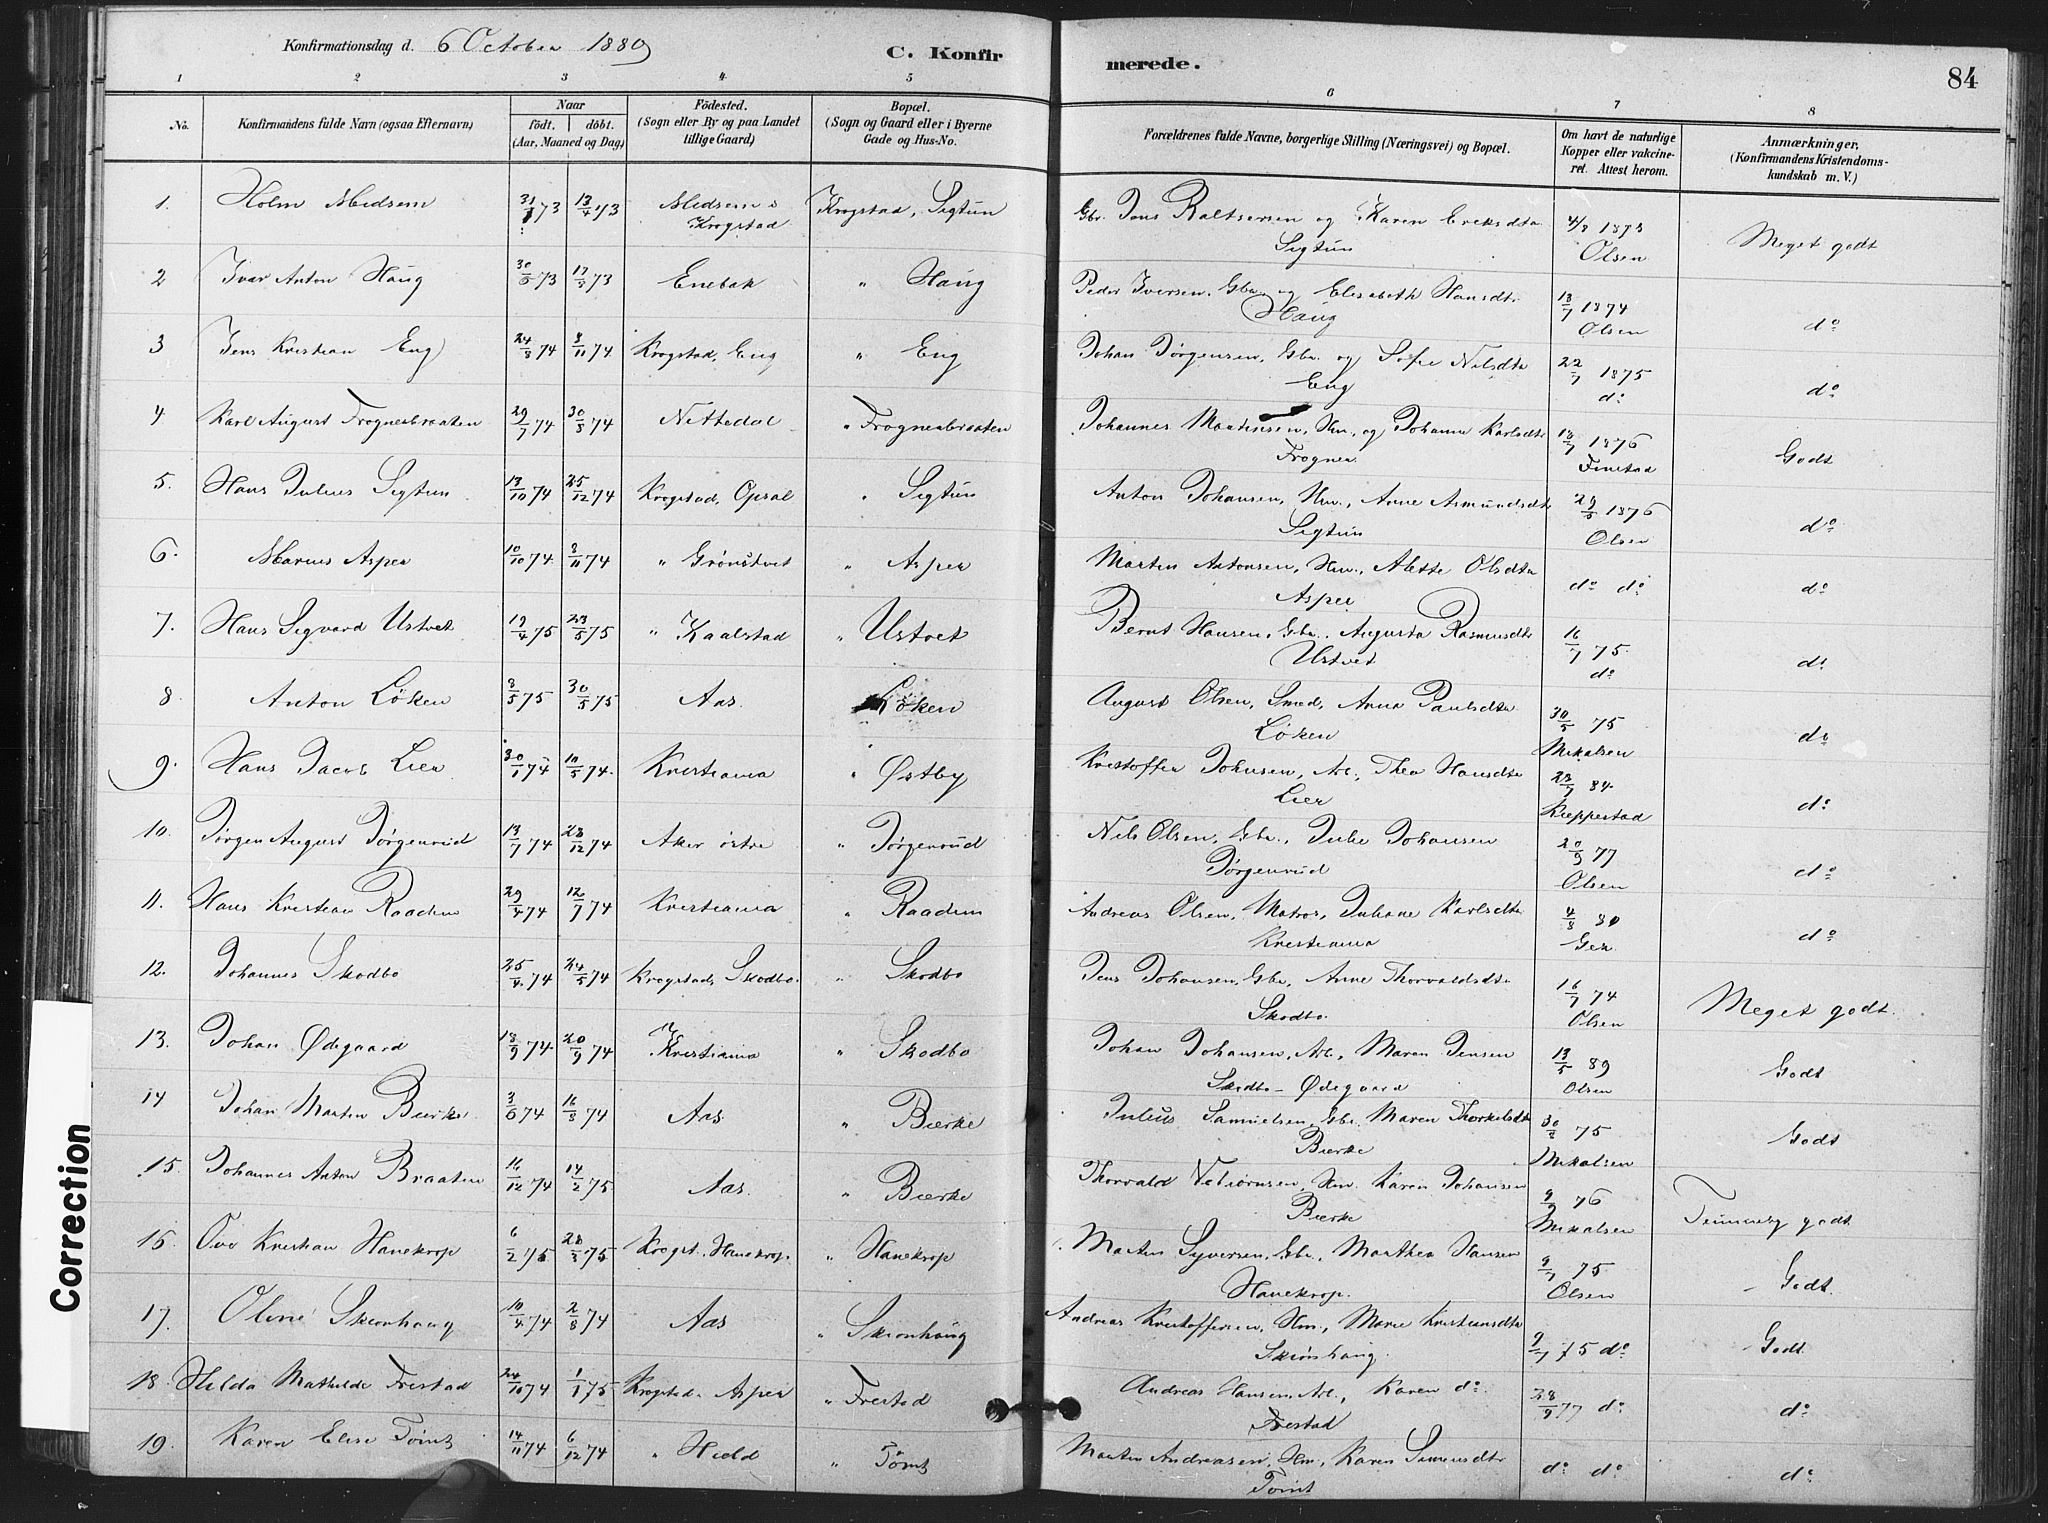 Konfirmationsdag d. 6 October 1889
C. Konfirmerede.
84
1 2 3 4 5 6 7 8
No.
Konfirmandens fulde Navn (ogsaa Efternavn)
Naar
födt. döbt.
(Aar, Maaned og Dag)
Födested.
(Sogn eller By og paa Landet tillige Gaard)
Bopæl.
(Sogn og Gaard eller i Byerne Gade og Hus-No.
Forældrenes fulde Navne, borgerlige Stilling (Næringsvei) og Bopæl.
Om havt de naturlige Kopper eller vakcineret. Attest herom.
Anmærkninger.
(Konfirmandens Kristendomskundskab m. V.)
1. Holm Midsem 31/1 73 13/4 73 Midsem i Krogstad Krogstad, Sigtun Gbr. Jens Baltsersen og Karen Eriksdtr Sigtun 4/8 1873 Olsen Meget godt
2 Ivar Anton Haug 30/5 73 17/8 73 Enebak " Haug Peder Iversen, Gbr. og Elisabeth Hansdtr Haug 13/7 1874 Olsen do
3 Jens Kristian Eng 24/8 74 8/11 74 Krogstad, Eng " Eng Johan Jørgensen, Gbr. og Sofie Nilsdtr Eng 22/7 1875 do do
4 Karl August Frognerbraaten 29/7 74 30/8 74 Nittedal " Frognerbraaten Johannes Martinsen, Hm., og Johanne Karlsdtr Frogner 18/7 1876 Finstad Godt
5. Hans Julius Sigtun 13/10 74 25/12 74 Krogstad, Opsal " Sigtun Anton Johansen, Hm., Anne Asmundsdtr Sigtun 29/5 1876 Olsen do
6. Marius Asper 10/10 74 8/11 74 " Grønstvet " Asper Martin Antonsen, Hm., Alette Olsdtr Asper do do do
7. Hans Sigvard Ustvet 19/4 75 23/5 75 " Kaalstad " Ustvet Bernt Hansen, Gbr., Augusta Rasmusdtr Ustvet 16/7 75. do do
8. Anton Løken 3/5 75 30/5 75 Aas. Løken August Olsen, Smed, Anna Paulsdtr Løken 30/5 75 Mikalsen do
9. Hans Jacob Lier 30/1 74 10/5 74. Kristiania " Østby Kristoffer Johnsen, Arb., Thea Hansdtr Lier 23/7 84. Kieppestad do
10. Jørgen August Jørgenrud 13/7 74 28/12 74 Aker østre " Jørgenrud Nils Olsen, Gbr., Julie Johansen Jørgenrud 20/9 77 Olsen do
11. Hans Kristian Raaden 29/4 74 12/7 74 Kristiania " Raaden Andreas Olsen, Matros, Juliane Karlsdtr Kristiania 4/8 80 do
12. Johannes Skodbo 25/4 74 24/5 74 Krogstad, Skodbo. " Skodbo Jens Johansen, Gbr., Anne Thorvaldsdtr Skodbo. 16/7 74 Olsen Meget godt.
13. Johan Ødegaard 18/9 74. 20/9 74 Kristiania " Skodbo Johan Johansen, Arb., Maren Jensen Skodbo - Ødegaard 13/5 89 Olsen Godt
14 Johan Martin Bierke 3/6 74 16/8 74 Aas " Bierke Julius Samuelsen, Gbr. Maren Thorkelsdtr Bierke 75 Mikalsen Godt
15. Johannes Anton Braaten 16/12 74 14/2 75 Aas. " Bierke Thorvald Vebiørnsen, Hm. Karen Johansen Bierke 76 Mikalsen Temmelig godt
16. Ove Kristian Hanekrop 6/2 75 28/3 75 Krogst. Hanekrop. " Hanekrop Martin Syversen, Gbr., Marthea Hansen Hanekrop. 9/7 75 Olsen - Godt.
17. Oline Skionhaug 10/4 74 2/8 74 Aas " Skionhaug Andreas Kristoffersen, Hm., Marie Kristiansdtr Skiønhaug. 9/7 75 do Godt
18. Hilda Mathilde Frestad 24/10 74 1/1 75 Krogstad. Asper " Frestad Andreas Hansen, Arb., Karen do. Frestad 28/9 77 do do
19. Karen Elise Tømt 14/11 74 6/12 74 " Hield " Tømt Martin Andreasen, Hm., Karen Simensdtr Tømt do do do
Correction